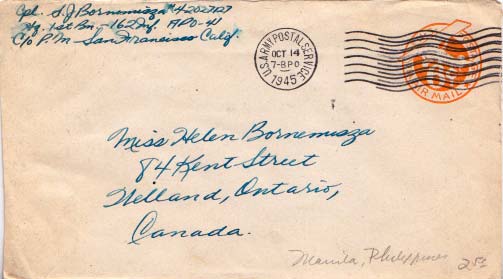 Cpl. S.J Bornemisza #4202727
Hq. 1st Bn - 162 Inf. APO-41
C/o P.M. San Francisco Calif.
U.S. ARMY POSTAL SERVICE
OCT 14
7-8PM
1945
APO
AIR MAIL
Miss Helen Bornemisza
84 Kent Street
Welland, Ontario,
Canada.
Manila, Philippines